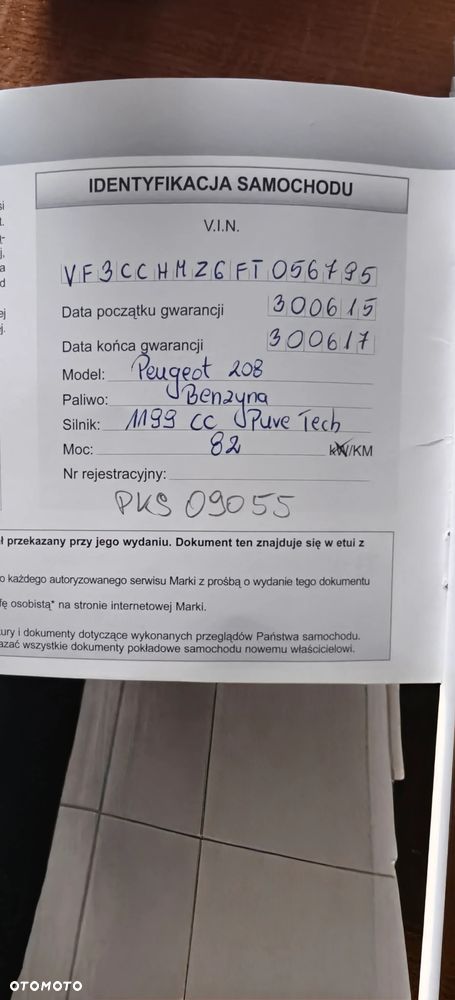 IDENTYFIKACJA SAMOCHODU
V.I.N.
VF3CCHMZ6FT056795
Data początku gwarancji 300615
Data końca gwarancji 300617
Model: Peugeot 208
Paliwo: Benzyna
Silnik: 1199 CC Pure Tech
Moc: 82 kW/KM
Nr rejestracyjny:
PKS 09055
ł przekazany przy jego wydaniu. Dokument ten znajduje się w etui z
o każdego autoryzowanego serwisu Marki z prośbą o wydanie tego dokumentu
fę osobistą* na stronie internetowej Marki.
tury i dokumenty dotyczące wykonanych przeglądów Państwa samochodu.
azać wszystkie dokumenty pokładowe samochodu nowemu właścicielowi.
OTOMOTO